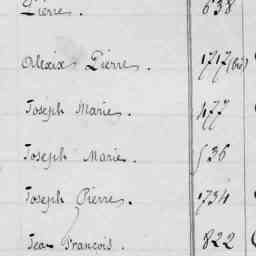 Pierre. 638
Alexis Pierre. 1717 (bis)
Joseph Marie. 477
Joseph Marie. 536
Joseph Pierre. 1734
Jean François. 822